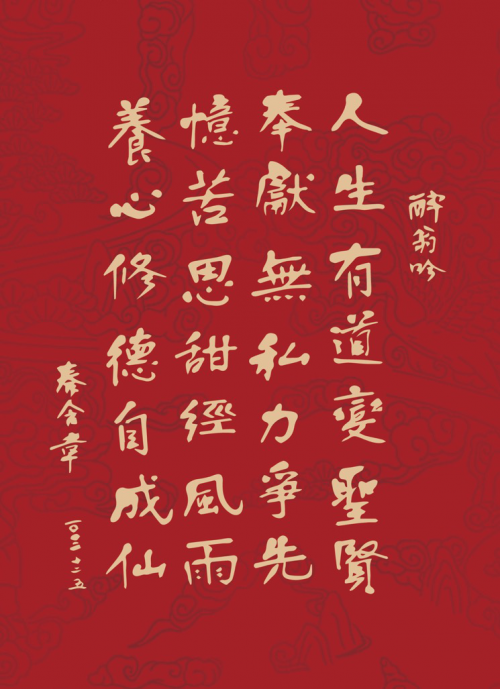 醉翁吟
人生有道變聖賢
奉獻無私力爭先
憶苦思甜經風雨
養心修德自成仙
秦含章
二〇〇二 十二 五